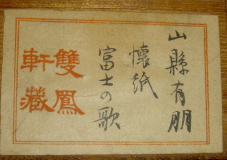 山縣有朋
懐紙
富士の歌
雙鳳
軒藏